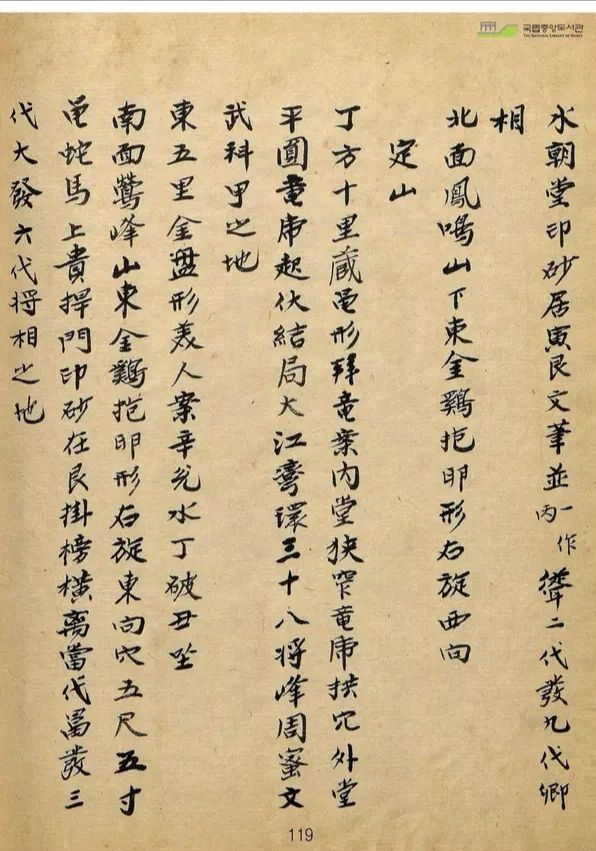 국립중앙도서관
THE NATIONAL LIBRARY OF KOREA
水朝堂印砂居寅艮文筆並一作丙聳二代發九代卿
相
北面鳳鳴山下東金鷄抱卵形右旋西向
定山
丁方十里藏亀形拜竜案内堂狹窄竜虎拱穴外堂
平圓竜虎起伏結局大江灣環三十八将峰周蜜文
武科甲之地
東五里金盤形美人案辛兌水丁破丑坐
南面鶯峰山東金鷄抱卵形右旋東向穴五尺五寸
亀蛇馬上貴捍門印砂在艮掛榜橫离當代富發三
代大發六代将相之地
119